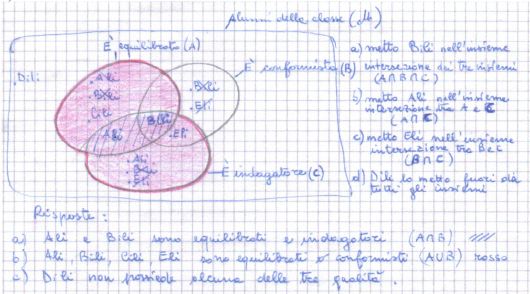 Alunni della classe (M)
È equilibrato (A)
È conformista (B)
È indagatore (C)
Dili
Ali
Bili
Cili
Bili
Eli
Ali
Bili
Eli
Ali
Bili
Eli
a) metto Bili nell'insieme
intersezione dei tre insiemi
(A∩B∩C)
b) metto Ali nell'insieme
intersezione tra A e C
(A∩C)
c) metto Eli nell'insieme
intersezione tra B e C
(B∩C)
d) Dili lo metto fuori da
tutti gli insiemi
Risposte:
a) Ali e Bili sono equilibrati e indagatori (A∩B)
b) Ali, Bili, Cili, Eli sono equilibrati o conformisti (A∪B) rosso
c) Dili non possiede alcuna delle tre qualità.